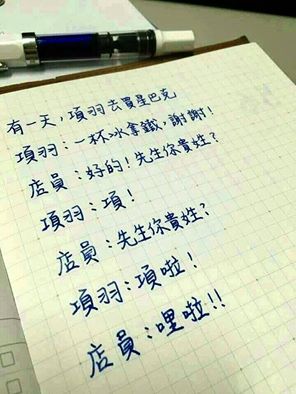 有一天，項羽去買星巴克
項羽：一杯冰拿鐵，謝謝！
店員：好的！先生你貴姓？
項羽：項！
店員：先生你貴姓？
項羽：項啦！
店員：哩啦！！